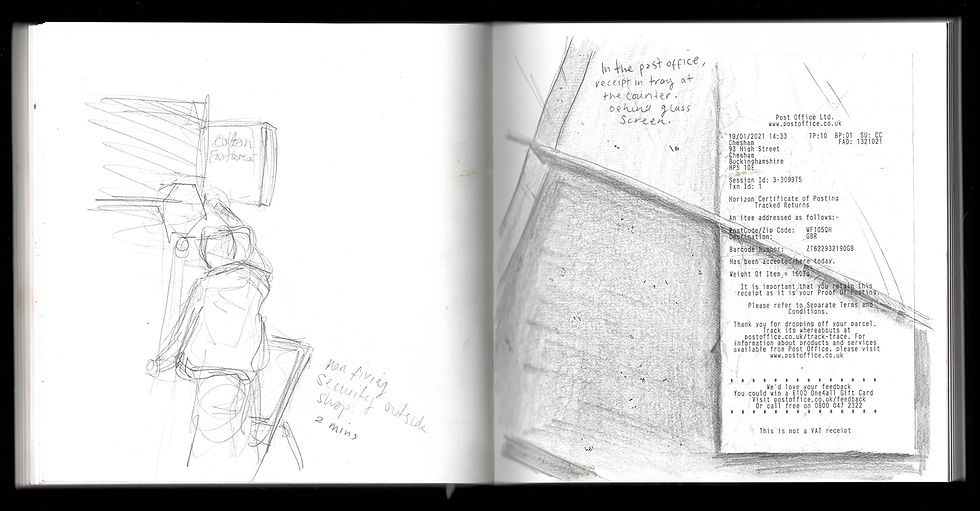 man fixing
security outside
shop.
2 mins
In the post office,
receipt in tray at
the counter.
behind glass
screen.
Post Office Ltd.
www.postoffice.co.uk
19/01/2021 14:33 TP:10 BP:01 SU: CC
Chesham FAD: 1321021
93 High Street
Chesham
Buckinghamshire
HP5 1DE
Session Id: 3-309975
Txn Id: 1
Horizon Certificate of Posting
Tracked Returns
An item addressed as follows:-
PostCode/Zip Code: WF105QH
Destination: GBR
Barcode Number: ZT622932190GB
Has been accepted here today.
Weight Of Item =
It is important that you retain this
receipt as it is your Proof Of Posting.
Please refer to Separate Terms and
Conditions.
Thank you for dropping off your parcel.
Track its whereabouts at
postoffice.co.uk/track-trace. For
information about products and services
available from Post Office, please visit
www.postoffice.co.uk
We'd love your feedback
You could win a £100 One4all Gift Card
Visit postoffice.co.uk/feedback
Or call free on 0800 047 2322
This is not a VAT receipt